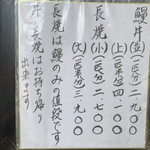 鰻丼(並)(一匹分)二、八〇〇
(上)(一匹半分)四、一〇〇
長焼(小)(一匹分)二、七〇〇
(大)(一匹半分)三、九〇〇
長焼は鰻のみの値段です
丼、長焼はお持ち帰り
出来ます